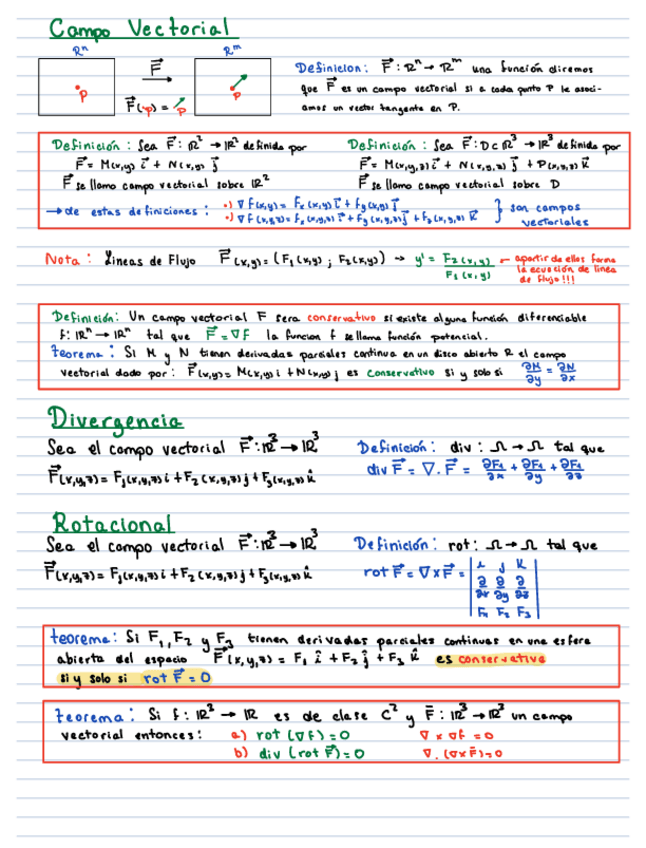 Campo Vectorial
Rⁿ Rᵐ
F⃗
p p
F⃗(p) = p
Definicion: F⃗: Rⁿ → Rᵐ una función diremos
que F⃗ es un campo vectorial si a cada punto P le asoci-
amos un vector tangente en P.
Definición: Sea F⃗: R² → R² definida por
F⃗ = M(x,y) i⃗ + N(x,y) j⃗
F⃗ se llama campo vectorial sobre R²
Definición: Sea F⃗: D⊂R³ → R³ definida por
F⃗ = M(x,y,z) i⃗ + N(x,y,z) j⃗ + P(x,y,z) k⃗
F⃗ se llama campo vectorial sobre D
→ de estas definiciones: •) ∇f(x,y) = Fx(x,y) i⃗ + Fy(x,y) j⃗
•) ∇f(x,y,z) = Fx(x,y,z) i⃗ + Fy(x,y,z) j⃗ + Fz(x,y,z) k⃗
} son campos
vectoriales
Nota: Lineas de Flujo F⃗(x,y) = (F₁(x,y) ; F₂(x,y)) → y' = F₂(x,y) / F₁(x,y)
← apartir de ellas forma
la ecuación de linea
de flujo!!!
Definición: Un campo vectorial F sera conservativo si existe alguna función diferenciable
f: Rⁿ → Rⁿ tal que F⃗ = ∇f la funcion f se llama función potencial.
teorema: Si M y N tienen derivadas parciales continua en un disco abierto R el campo
vectorial dado por: F⃗(x,y) = M(x,y) i + N(x,y) j es conservativo si y solo si ∂M/∂y = ∂N/∂x
Divergencia
Sea el campo vectorial F⃗: R³ → R³
F⃗(x,y,z) = F₁(x,y,z) i + F₂(x,y,z) j + F₃(x,y,z) k̂
Definición: div : Ω → Ω tal que
div F⃗ = ∇ . F⃗ = ∂F₁/∂x + ∂F₁/∂y + ∂F₁/∂z
Rotacional
Sea el campo vectorial F⃗: R³ → R³
F⃗(x,y,z) = F₁(x,y,z) i + F₂(x,y,z) j + F₃(x,y,z) k̂
Definición: rot : Ω → Ω tal que
rot F⃗ = ∇ × F⃗ = | i j k
∂/∂x ∂/∂y ∂/∂z
F₁ F₂ F₃ |
teorema: Si F₁, F₂ y F₃ tienen derivadas parciales continuas en una esfera
abierta del espacio F⃗(x,y,z) = F₁ î + F₂ ĵ + F₃ k̂ es conservativa
si y solo si rot F⃗ = 0
teorema: Si f: R³ → R es de clase C² y F⃗: R³ → R³ un campo
vectorial entonces: a) rot (∇f) = 0 ∇ × ∇f = 0
b) div (rot F⃗) = 0 ∇ . (∇×F⃗) = 0